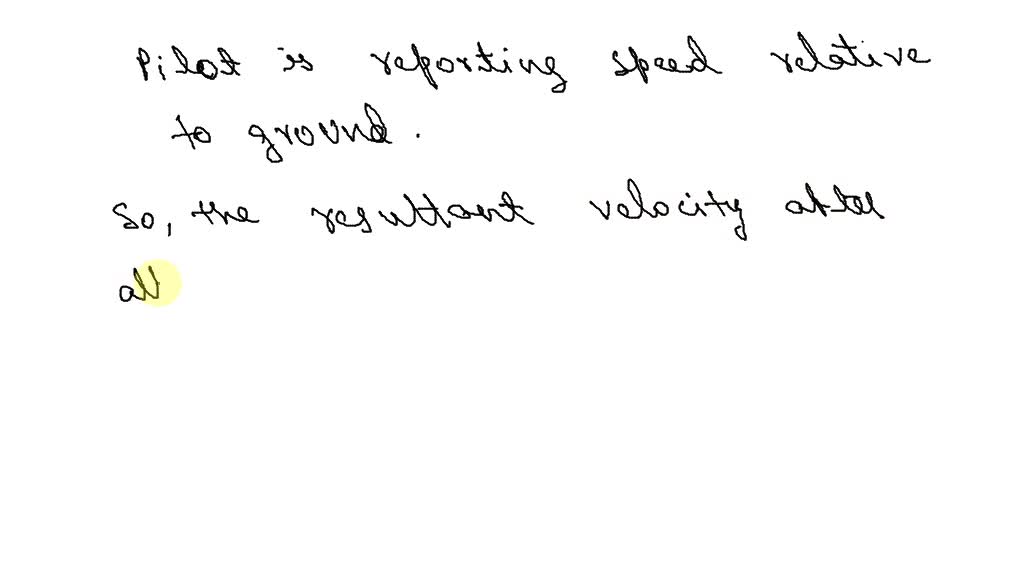 Pilot is reporting speed relative
to ground.
So, the resultant velocity after
all